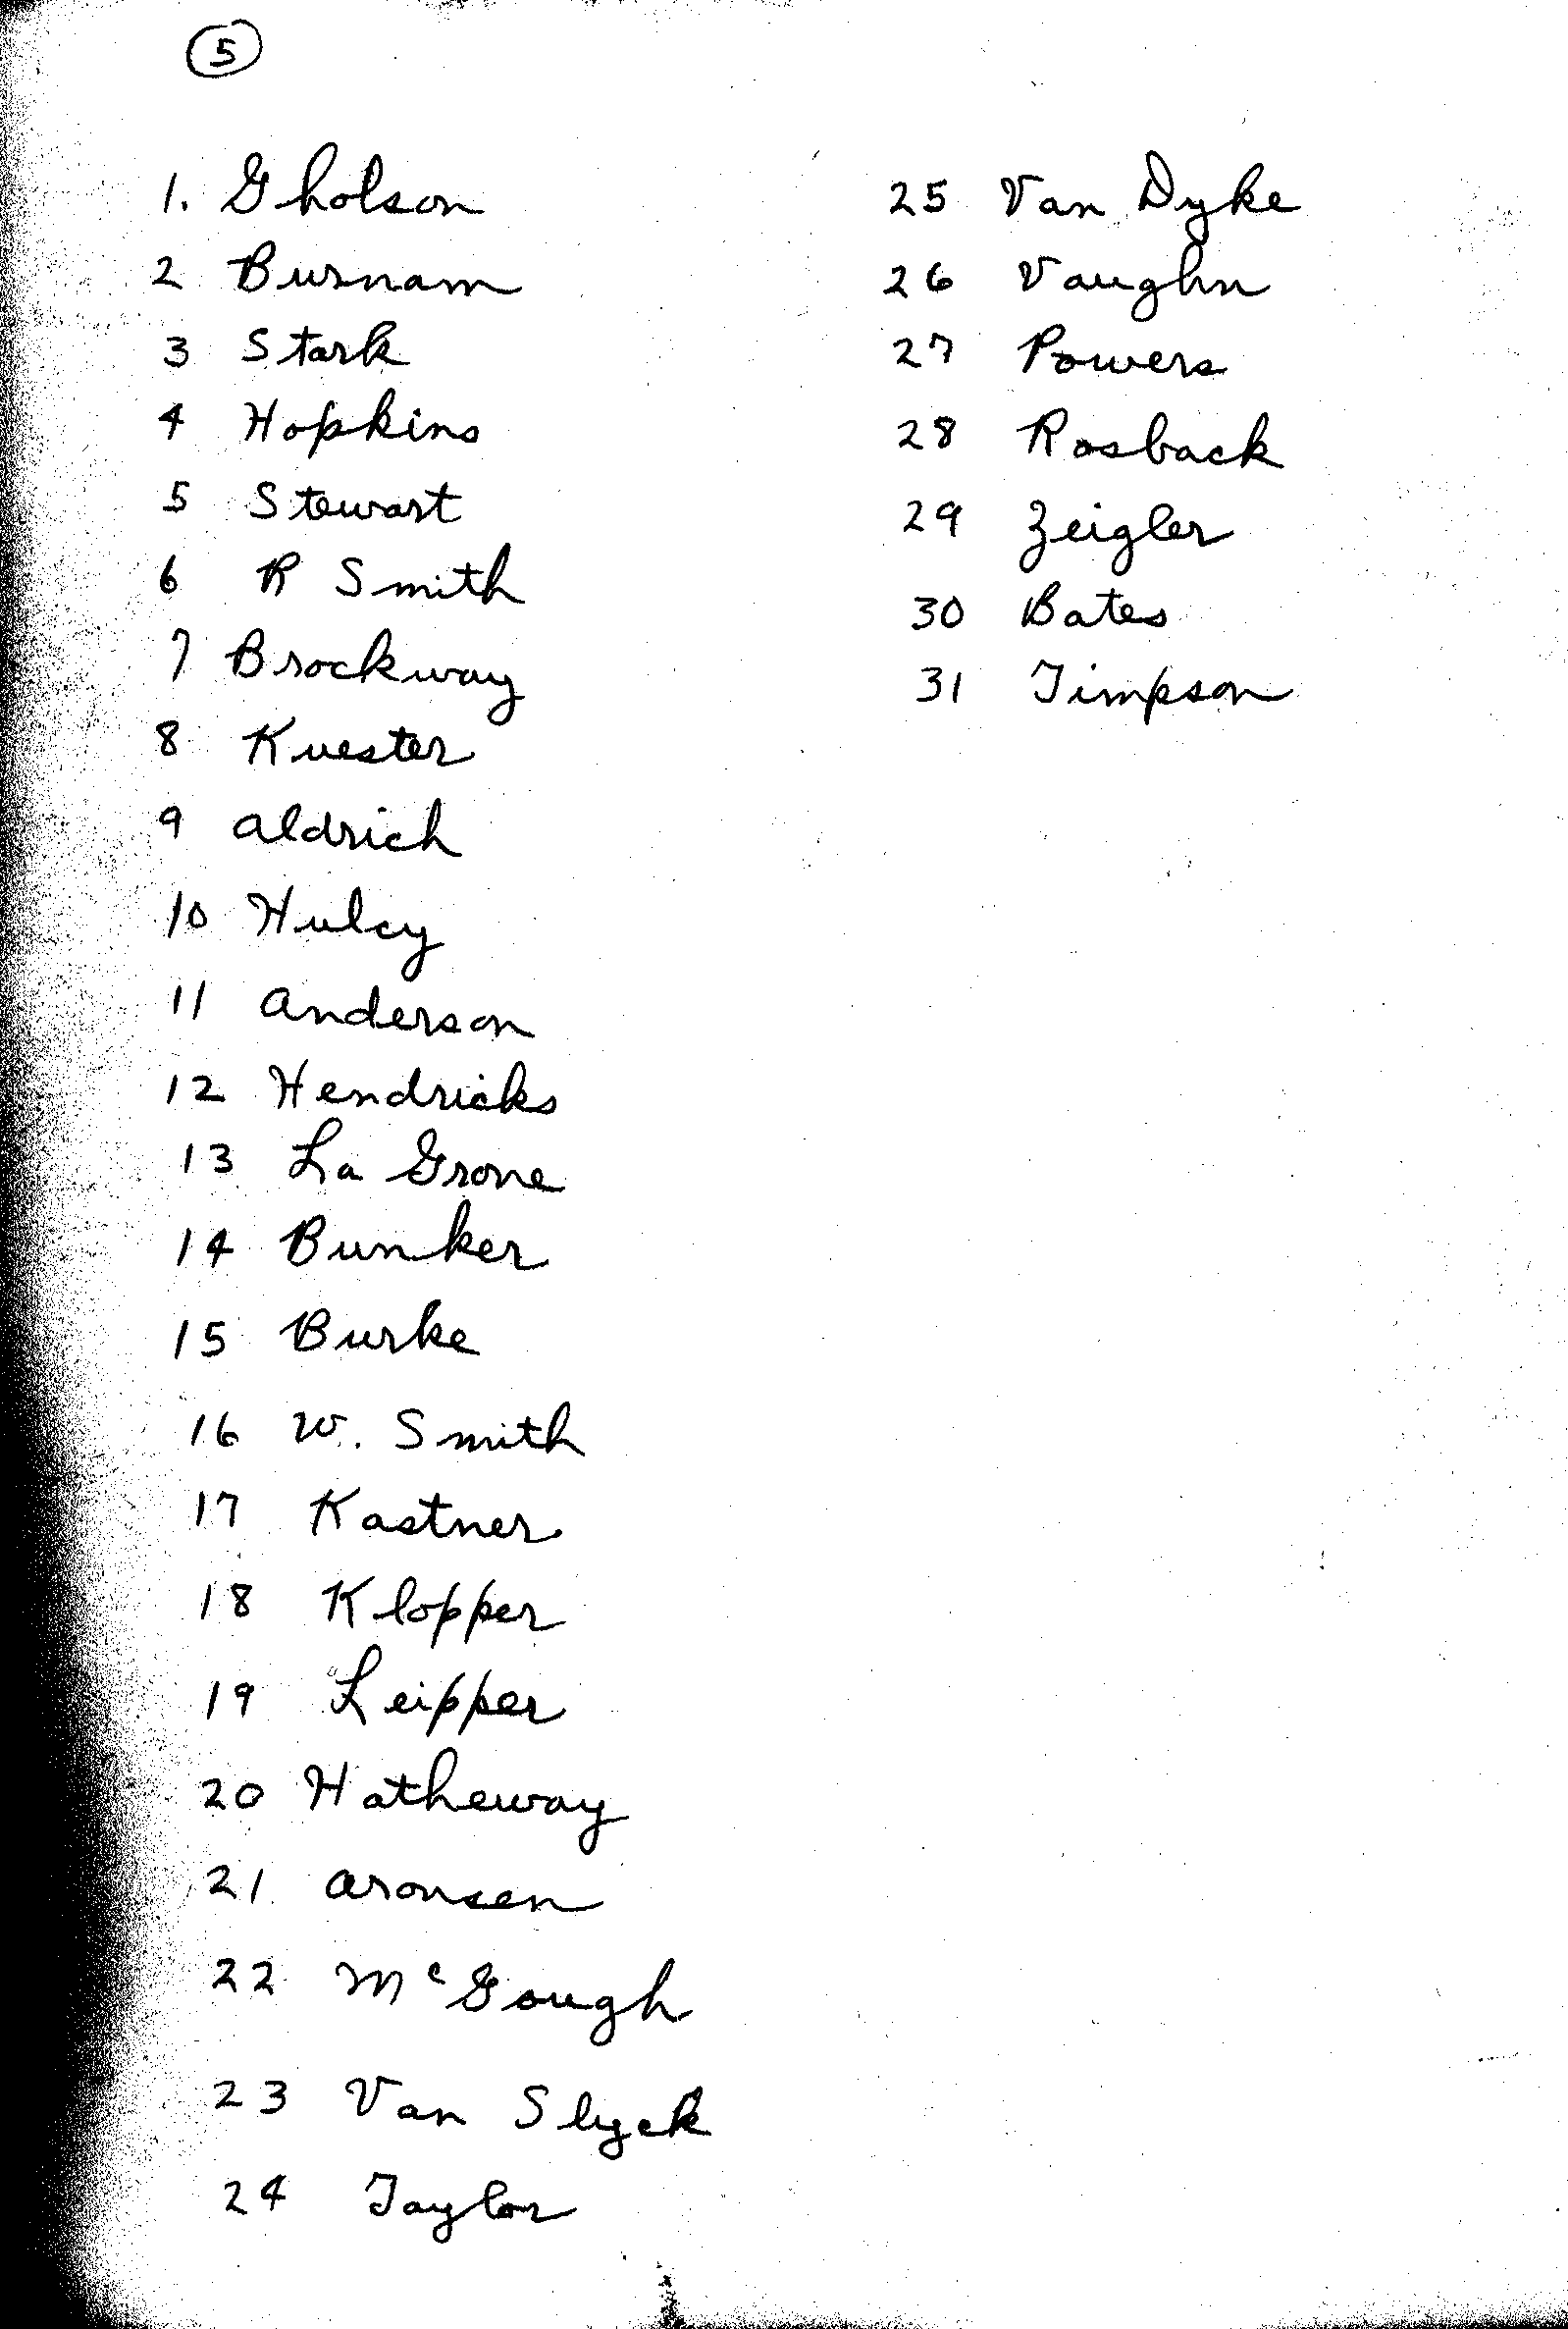 5
1. Gholson
2 Burnam
3 Stark
4 Hopkins
5 Stewart
6 R Smith
7 Brockway
8 Kuester
9 Aldrich
10 Hulcy
11 Anderson
12 Hendricks
13 La Grone
14 Bunker
15 Burke
16 W. Smith
17 Kastner
18 Klopper
19 Leipper
20 Hatheway
21 Aronsen
22 McGough
23 Van Slyck
24 Taylor
25 Van Dyke
26 Vaughn
27 Powers
28 Rosback
29 Zeigler
30 Bates
31 Timpson